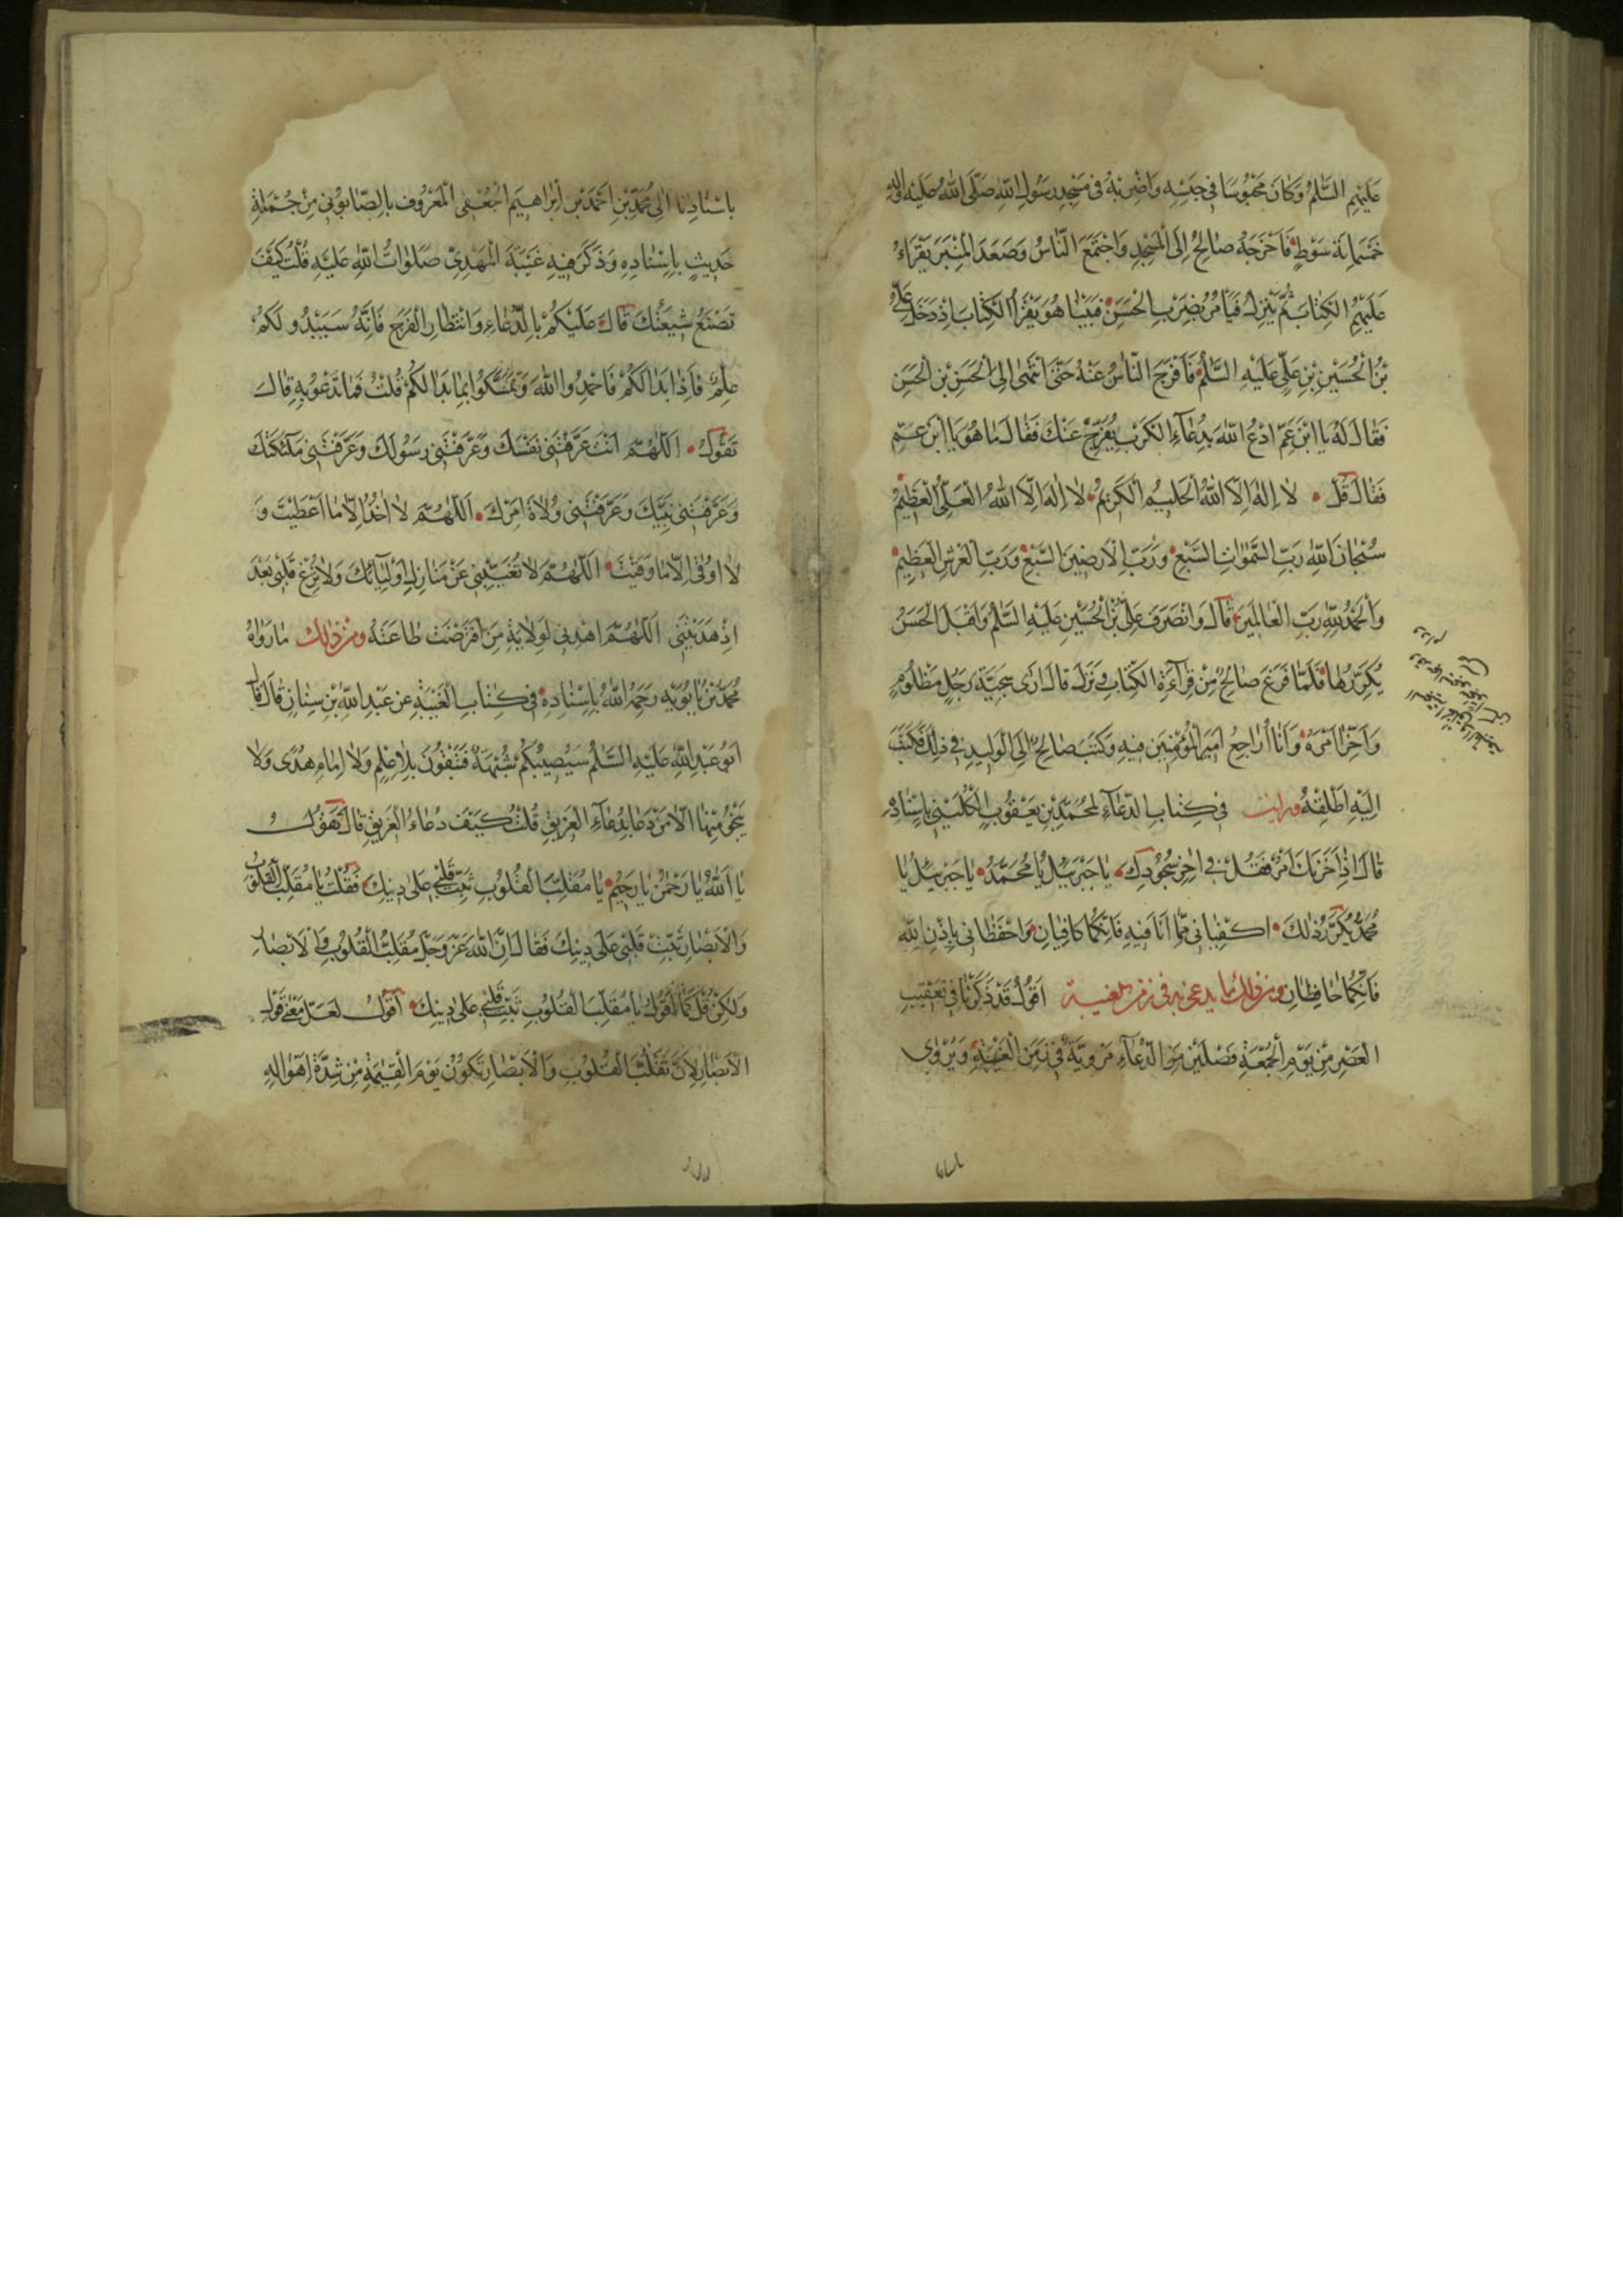 عَلَيْهِمُ السَّلٰمُ وَكَانَ مَحْبُوسًا فِي حَبْسِهِ وَاضْرِبْهُ فِي مَسْجِدِ رَسُولِ اللهِ صَلَّى اللهُ عَلَيْهِ وَآلِهِ
خَمْسَمِائَةِ سَوْطٍ فَاَخْرَجَهُ صَالِحٌ اِلَى الْمَسْجِدِ وَاجْتَمَعَ النَّاسُ وَصَعَدَ الْمِنْبَرَ يَقْرَاءُ
عَلَيْهِمُ الْكِتَابَ ثُمَّ يَنْزِلُ فَيَأْمُرُ بِضَرْبِ الْحَسَنِ فَبَيْنَا هُوَ يَقْرَأُ الْكِتَابَ اِذْ دَخَلَ عَلِيُّ
بْنُ الْحُسَيْنِ بْنِ عَلِيٍّ عَلَيْهِ السَّلٰمُ فَاَفْرَجَ النَّاسُ عَنْهُ حَتَّى انْتَهَى اِلَى الْحَسَنِ بْنِ الْحَسَنِ
فَقَالَ لَهُ يَا ابْنَ عَمِّ ادْعُ اللهَ بِدُعَآءِ الْكَرْبِ يُفَرِّجْ عَنْكَ فَقَالَ مَا هُوَ يَا ابْنَ عَمِّ
فَقَالَ قُلْ لَا اِلٰهَ اِلَّا اللهُ الْحَلِيمُ الْكَرِيمُ لَا اِلٰهَ اِلَّا اللهُ الْعَلِيُّ الْعَظِيمُ
سُبْحَانَ اللهِ رَبِّ السَّمٰوَاتِ السَّبْعِ وَرَبِّ الْاَرَضِينَ السَّبْعِ وَرَبِّ الْعَرْشِ الْعَظِيمِ
وَالْحَمْدُ لِلّٰهِ رَبِّ الْعَالَمِينَ قَالَ وَانْصَرَفَ عَلِيُّ بْنُ الْحُسَيْنِ عَلَيْهِ السَّلٰمُ وَاَقْبَلَ الْحَسَنُ
يُكَرِّرُهَا فَلَمَّا فَرَغَ صَالِحٌ مِنْ قِرَآءَةِ الْكِتَابِ وَنَزَلَ قَالَ اَرَى سَجِيَّةَ رَجُلٍ مَظْلُومٍ
وَاَخِّرُوا اَمْرَهُ وَاَنَا اُرَاجِعُ اَمِيرَ الْمُؤْمِنِينَ فِيهِ وَكَتَبَ صَالِحٌ اِلَى الْوَلِيدِ فِي ذٰلِكَ فَكَتَبَ
اِلَيْهِ اَطْلِقْهُ ورايت فِي كِتَابِ الدُّعَآءِ لِمُحَمَّدِ بْنِ يَعْقُوبَ الْكُلَيْنِيِّ بِاِسْنَادِهِ
قَالَ اِذَا حَزَنَكَ اَمْرٌ فَقُلْ فِي اٰخِرِ سُجُودِكَ يَا جَبْرَئِيلُ يَا مُحَمَّدُ يَا جَبْرَئِيلُ يَا
مُحَمَّدُ تُكَرِّرُ ذٰلِكَ اكْفِيَانِي مِمَّا اَنَا فِيهِ فَاِنَّكُمَا كَافِيَانِ وَاحْفَظَانِي بِاِذْنِ اللهِ
فَاِنَّكُمَا حَافِظَانِ ومن ذلك ما يدعى به فى زمن الغيبة اَقُولُ قَدْ ذَكَرْنَا فِي تَعْقِيبِ
الْعَصْرِ مِنْ يَوْمِ الْجُمُعَةِ فَصْلَيْنِ مِنَ الدُّعَآءِ مَرْوِيَّةً فِي زَمَنِ الْغَيْبَةِ وَيُرْوٰى
بِاِسْنَادِنَا اِلَى مُحَمَّدِ بْنِ اَحْمَدَ بْنِ اِبْرَاهِيمَ الْجُعْفِيِّ الْمَعْرُوفِ بِالصَّابُونِيِّ مِنْ جُمْلَةِ
حَدِيثٍ بِاِسْنَادِهِ وَذَكَرَ فِيهِ غَيْبَةَ الْمَهْدِيِّ صَلَوَاتُ اللهِ عَلَيْهِ قُلْتُ كَيْفَ
تَصْنَعُ شِيعَتُكَ قَالَ عَلَيْكُمْ بِالدُّعَاءِ وَانْتِظَارِ الْفَرَجِ فَاِنَّهُ سَيَبْدُو لَكُمْ
عِلْمٌ فَاِذَا بَدَا لَكُمْ فَاحْمَدُوا اللهَ وَتَمَسَّكُوا بِمَا بَدَا لَكُمْ قُلْتُ فَمَا نَدْعُو بِهِ قَالَ
تَقُولُ اَللّٰهُمَّ اَنْتَ عَرَّفْتَنِي نَفْسَكَ وَعَرَّفْتَنِي رَسُولَكَ وَعَرَّفْتَنِي مَلٰئِكَتَكَ
وَعَرَّفْتَنِي نَبِيَّكَ وَعَرَّفْتَنِي وُلَاةَ اَمْرِكَ اَللّٰهُمَّ لَا اٰخُذُ اِلَّا مَا اَعْطَيْتَ وَ
لَا اُوقٰى اِلَّا مَا وَقَيْتَ اَللّٰهُمَّ لَا تُغَيِّبْنِي عَنْ مَنَازِلِ اَوْلِيَآئِكَ وَلَا تُزِغْ قَلْبِي بَعْدَ
اِذْ هَدَيْتَنِي اَللّٰهُمَّ اهْدِنِي لِوِلَايَةِ مَنِ افْتَرَضْتَ طَاعَتَهُ ومن ذلك مَا رَوَاهُ
مُحَمَّدُ بْنُ بَابَوَيْهِ رَحِمَهُ اللهُ بِاِسْنَادِهِ فِي كِتَابِ الْغَيْبَةِ عَنْ عَبْدِ اللهِ بْنِ سِنَانٍ قَالَ قَالَ
اَبُو عَبْدِ اللهِ عَلَيْهِ السَّلٰمُ سَيُصِيبُكُمْ شُبْهَةٌ فَتَبْقُونَ بِلَا عِلْمٍ وَلَا اِمَامِ هُدًى وَلَا
يَنْجُو مِنْهَا اِلَّا مَنْ دَعَا بِدُعَآءِ الْغَرِيقِ قُلْتُ كَيْفَ دُعَاءُ الْغَرِيقِ قَالَ تَقُولُ
يَا اَللهُ يَا رَحْمٰنُ يَا رَحِيمُ يَا مُقَلِّبَ الْقُلُوبِ ثَبِّتْ قَلْبِي عَلٰى دِينِكَ فَقُلْتُ يَا مُقَلِّبَ الْقُلُوبِ
وَالْاَبْصَارِ ثَبِّتْ قَلْبِي عَلٰى دِينِكَ فَقَالَ اِنَّ اللهَ عَزَّ وَجَلَّ مُقَلِّبُ الْقُلُوبِ وَالْاَبْصَارِ
وَلٰكِنْ قُلْ كَمَا اَقُولُ يَا مُقَلِّبَ الْقُلُوبِ ثَبِّتْ قَلْبِي عَلٰى دِينِكَ اَقُولُ لَعَلَّ مَعْنٰى قَوْلِهِ
الْاَبْصَارِ لِاَنَّ تَقَلُّبَ الْقُلُوبِ وَالْاَبْصَارِ تَكُونُ يَوْمَ الْقِيٰمَةِ مِنْ شِدَّةِ اَهْوَالِهِ